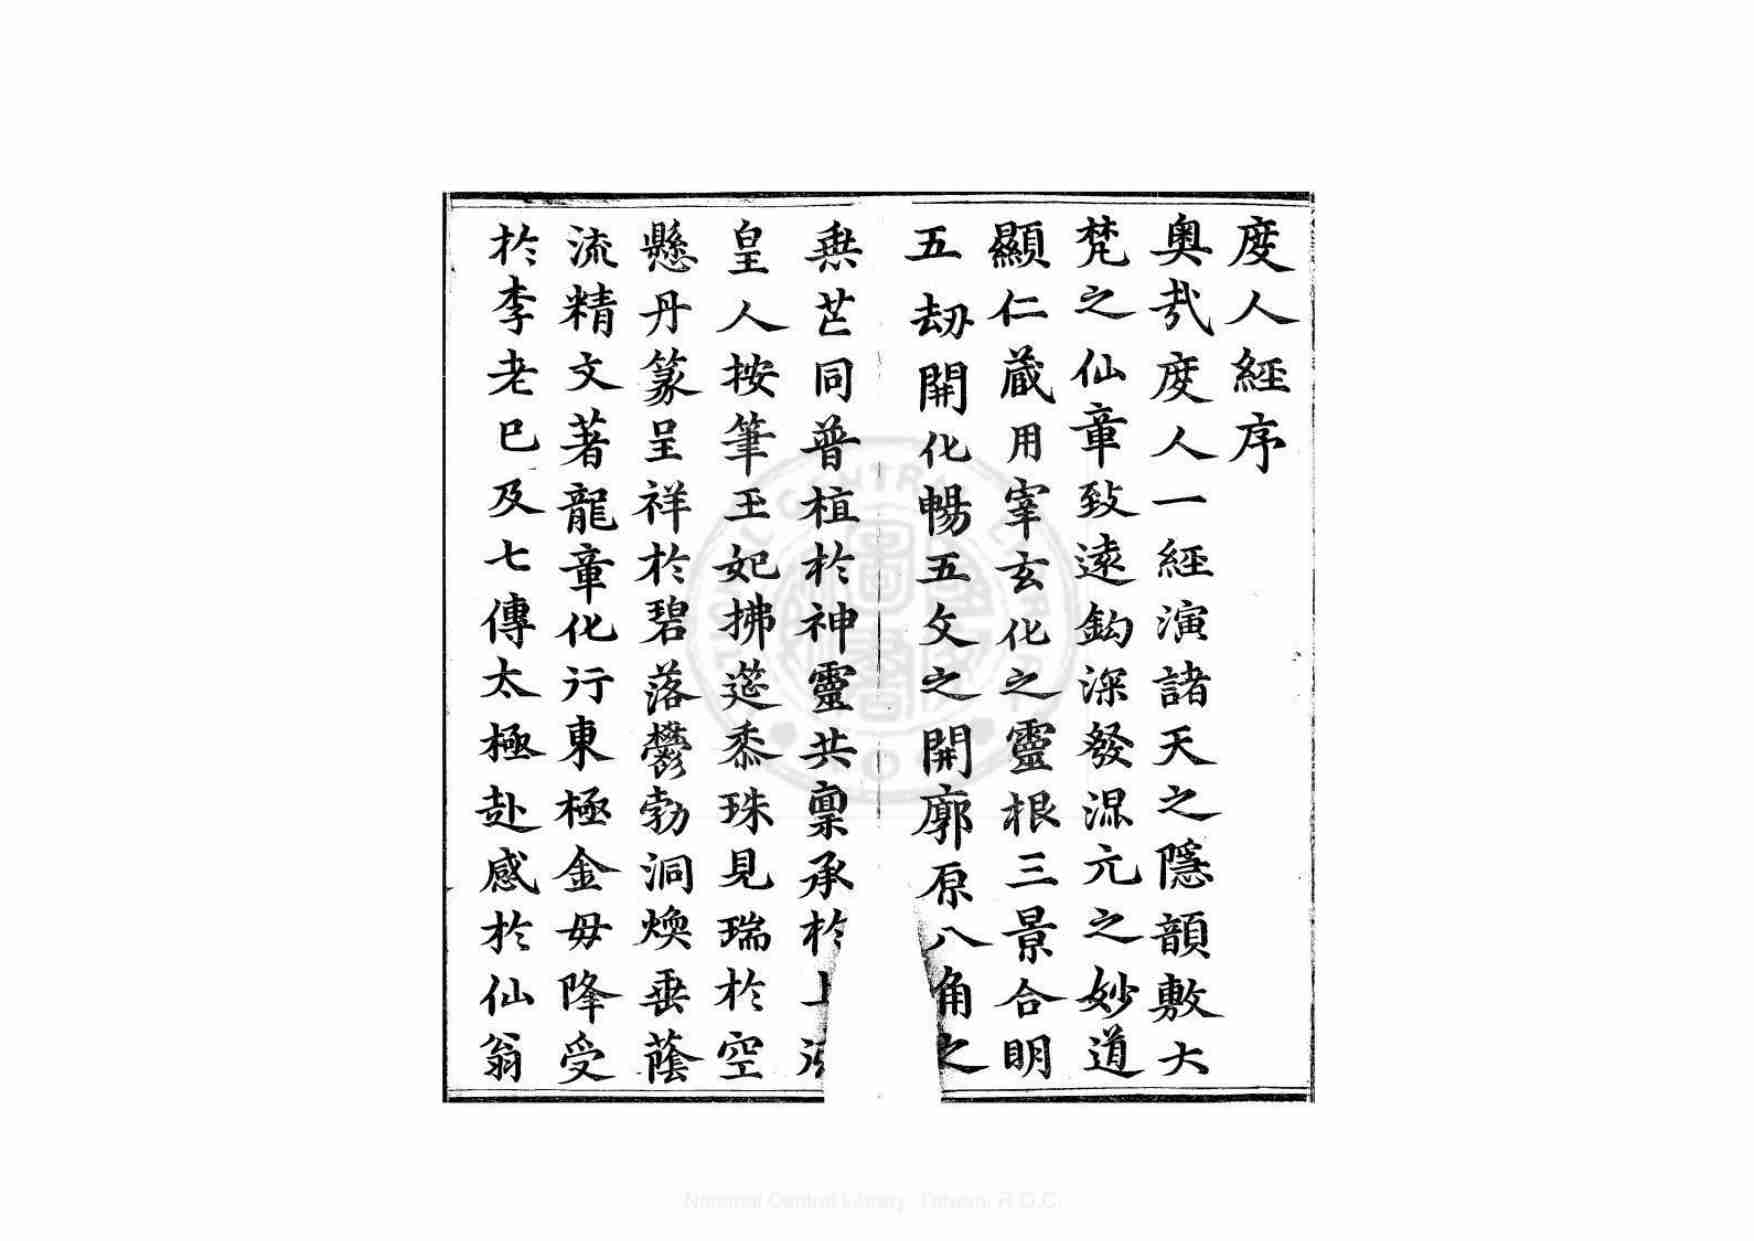 度人經序
奥㢤度人一經演諸天之隱韻敷大
梵之仙章致遠鈎深發混元之妙道
顯仁蔵用宰玄化之靈根三景合明
五刼開化暢五文之開廓原八角之
埀芒同普植於神靈共稟承於上
皇人按筆玉妃拂筵黍珠見瑞於空
懸丹篆呈祥於碧落鬱勃洞煥垂蔭
流精文著龍章化行東極金母降受
於李老巳及七傳太極赴感於仙翁
National Central Library, Taiwan, R.O.C.